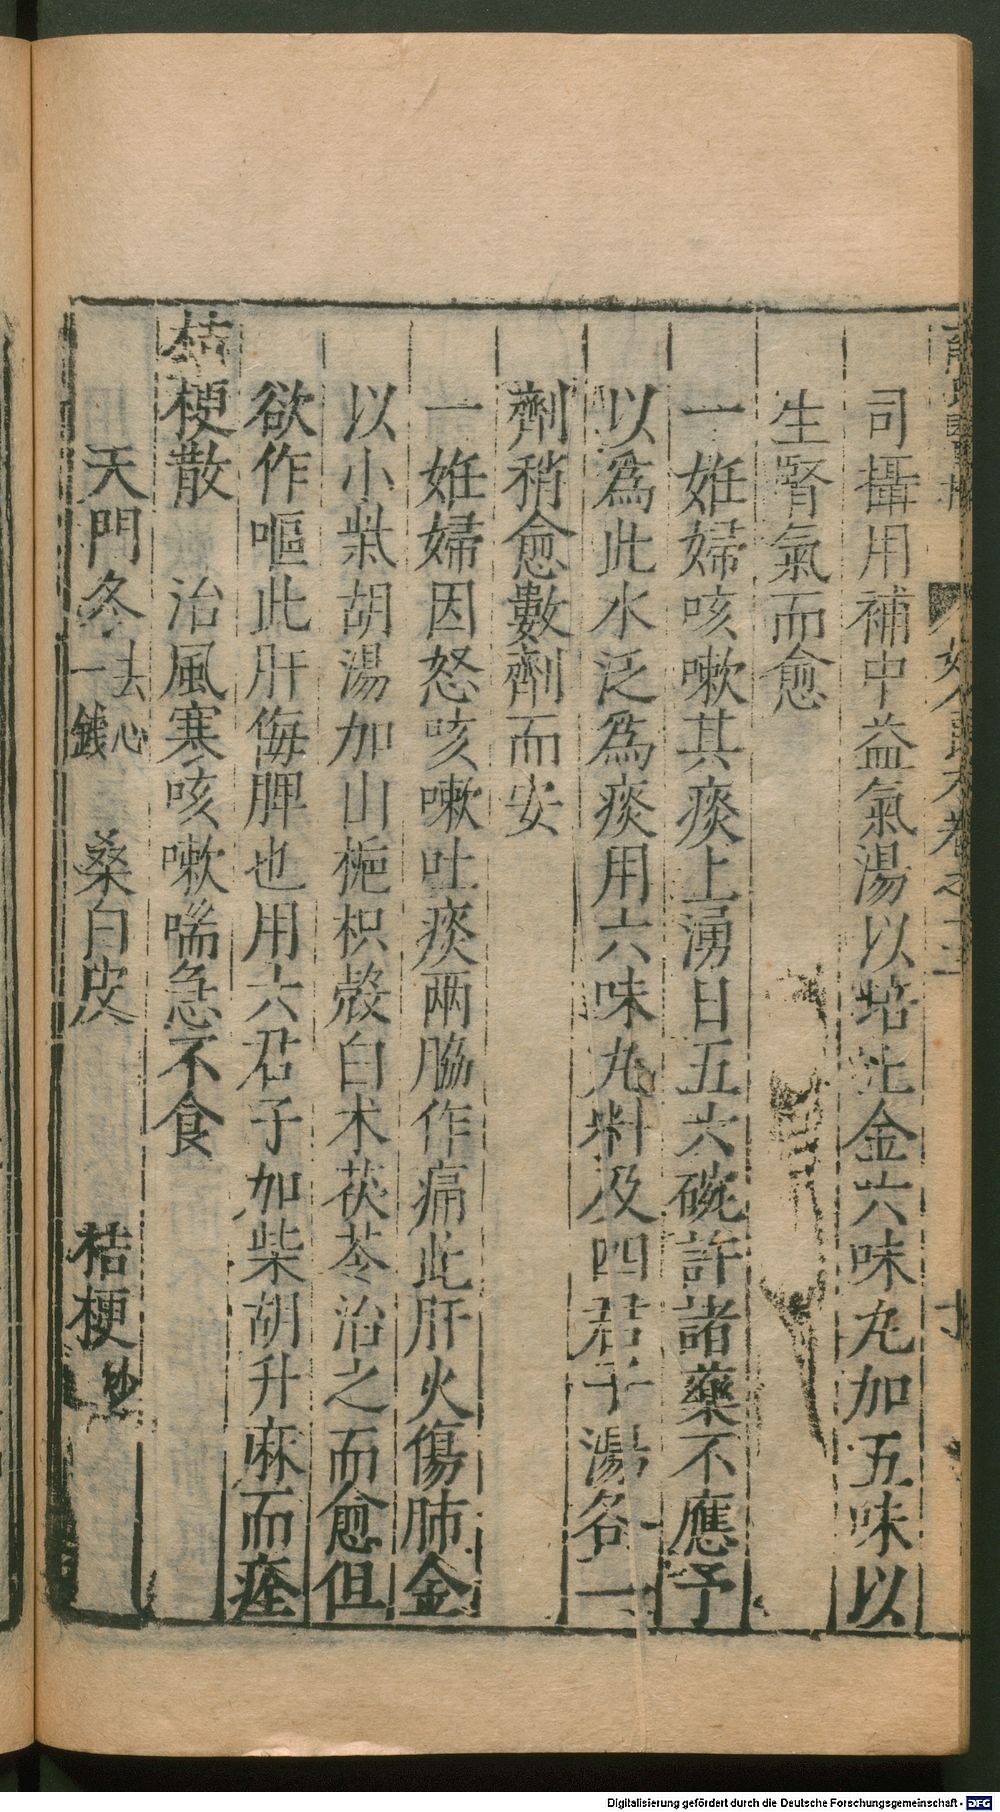 司攝用補中益氣湯以培土金六味丸加五味以
生腎氣而愈
一姙婦咳嗽其痰上湧日五六碗許諸藥不應予
以爲此水泛爲痰用六味丸料及四君子湯各一
劑稍愈數劑而安
一姙婦因怒咳嗽吐痰兩脇作痛此肝火傷肺金
以小柴胡湯加山梔枳殼白术茯苓治之而愈但
欲作嘔此肝侮脾也用六君子加柴胡升麻而痊
桔梗散　治風寒咳嗽喘急不食
天門冬去心一錢　桑白皮　桔梗炒
Digitalisierung gefördert durch die Deutsche Forschungsgemeinschaft - DFG